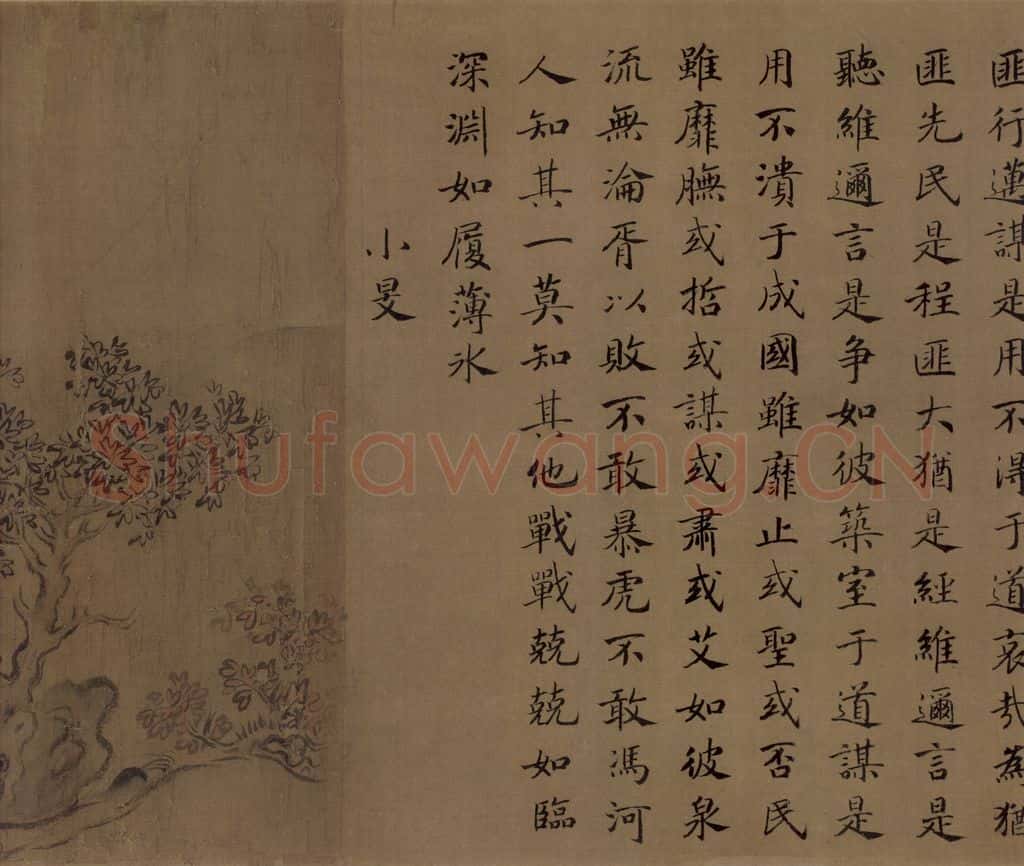 匪行邁謀是用不得于道哀哉為猶
匪先民是程匪大猶是經維邇言是
聽維邇言是争如彼築室于道謀是
用不潰于成國雖靡止或聖或否民
雖靡膴或哲或謀或肅或艾如彼泉
流無淪胥以敗不敢暴虎不敢馮河
人知其一莫知其他戰戰兢兢如臨
深淵如履薄冰
小旻
Shufawang.CN